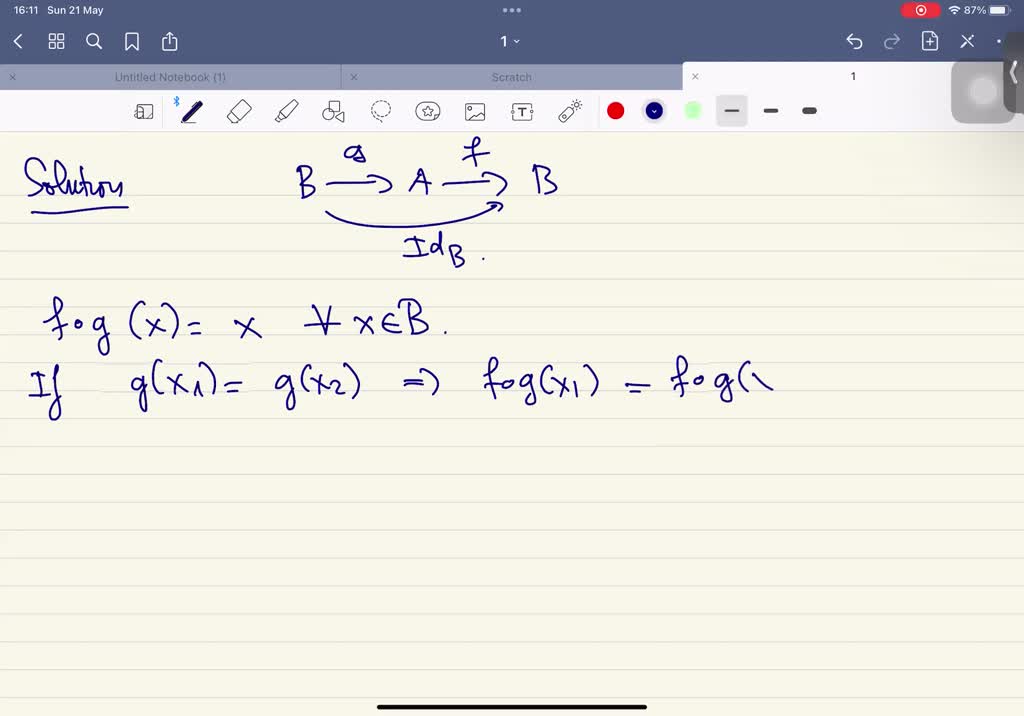 16:11 Sun 21 May 87%
1
Untitled Notebook (1) Scratch 1
T
Solution B g→ A f→ B
Id_B .
fog (x) = x ∀ x∈B .
If g(x1) = g(x2) ⇒ fog(x1) = fog(